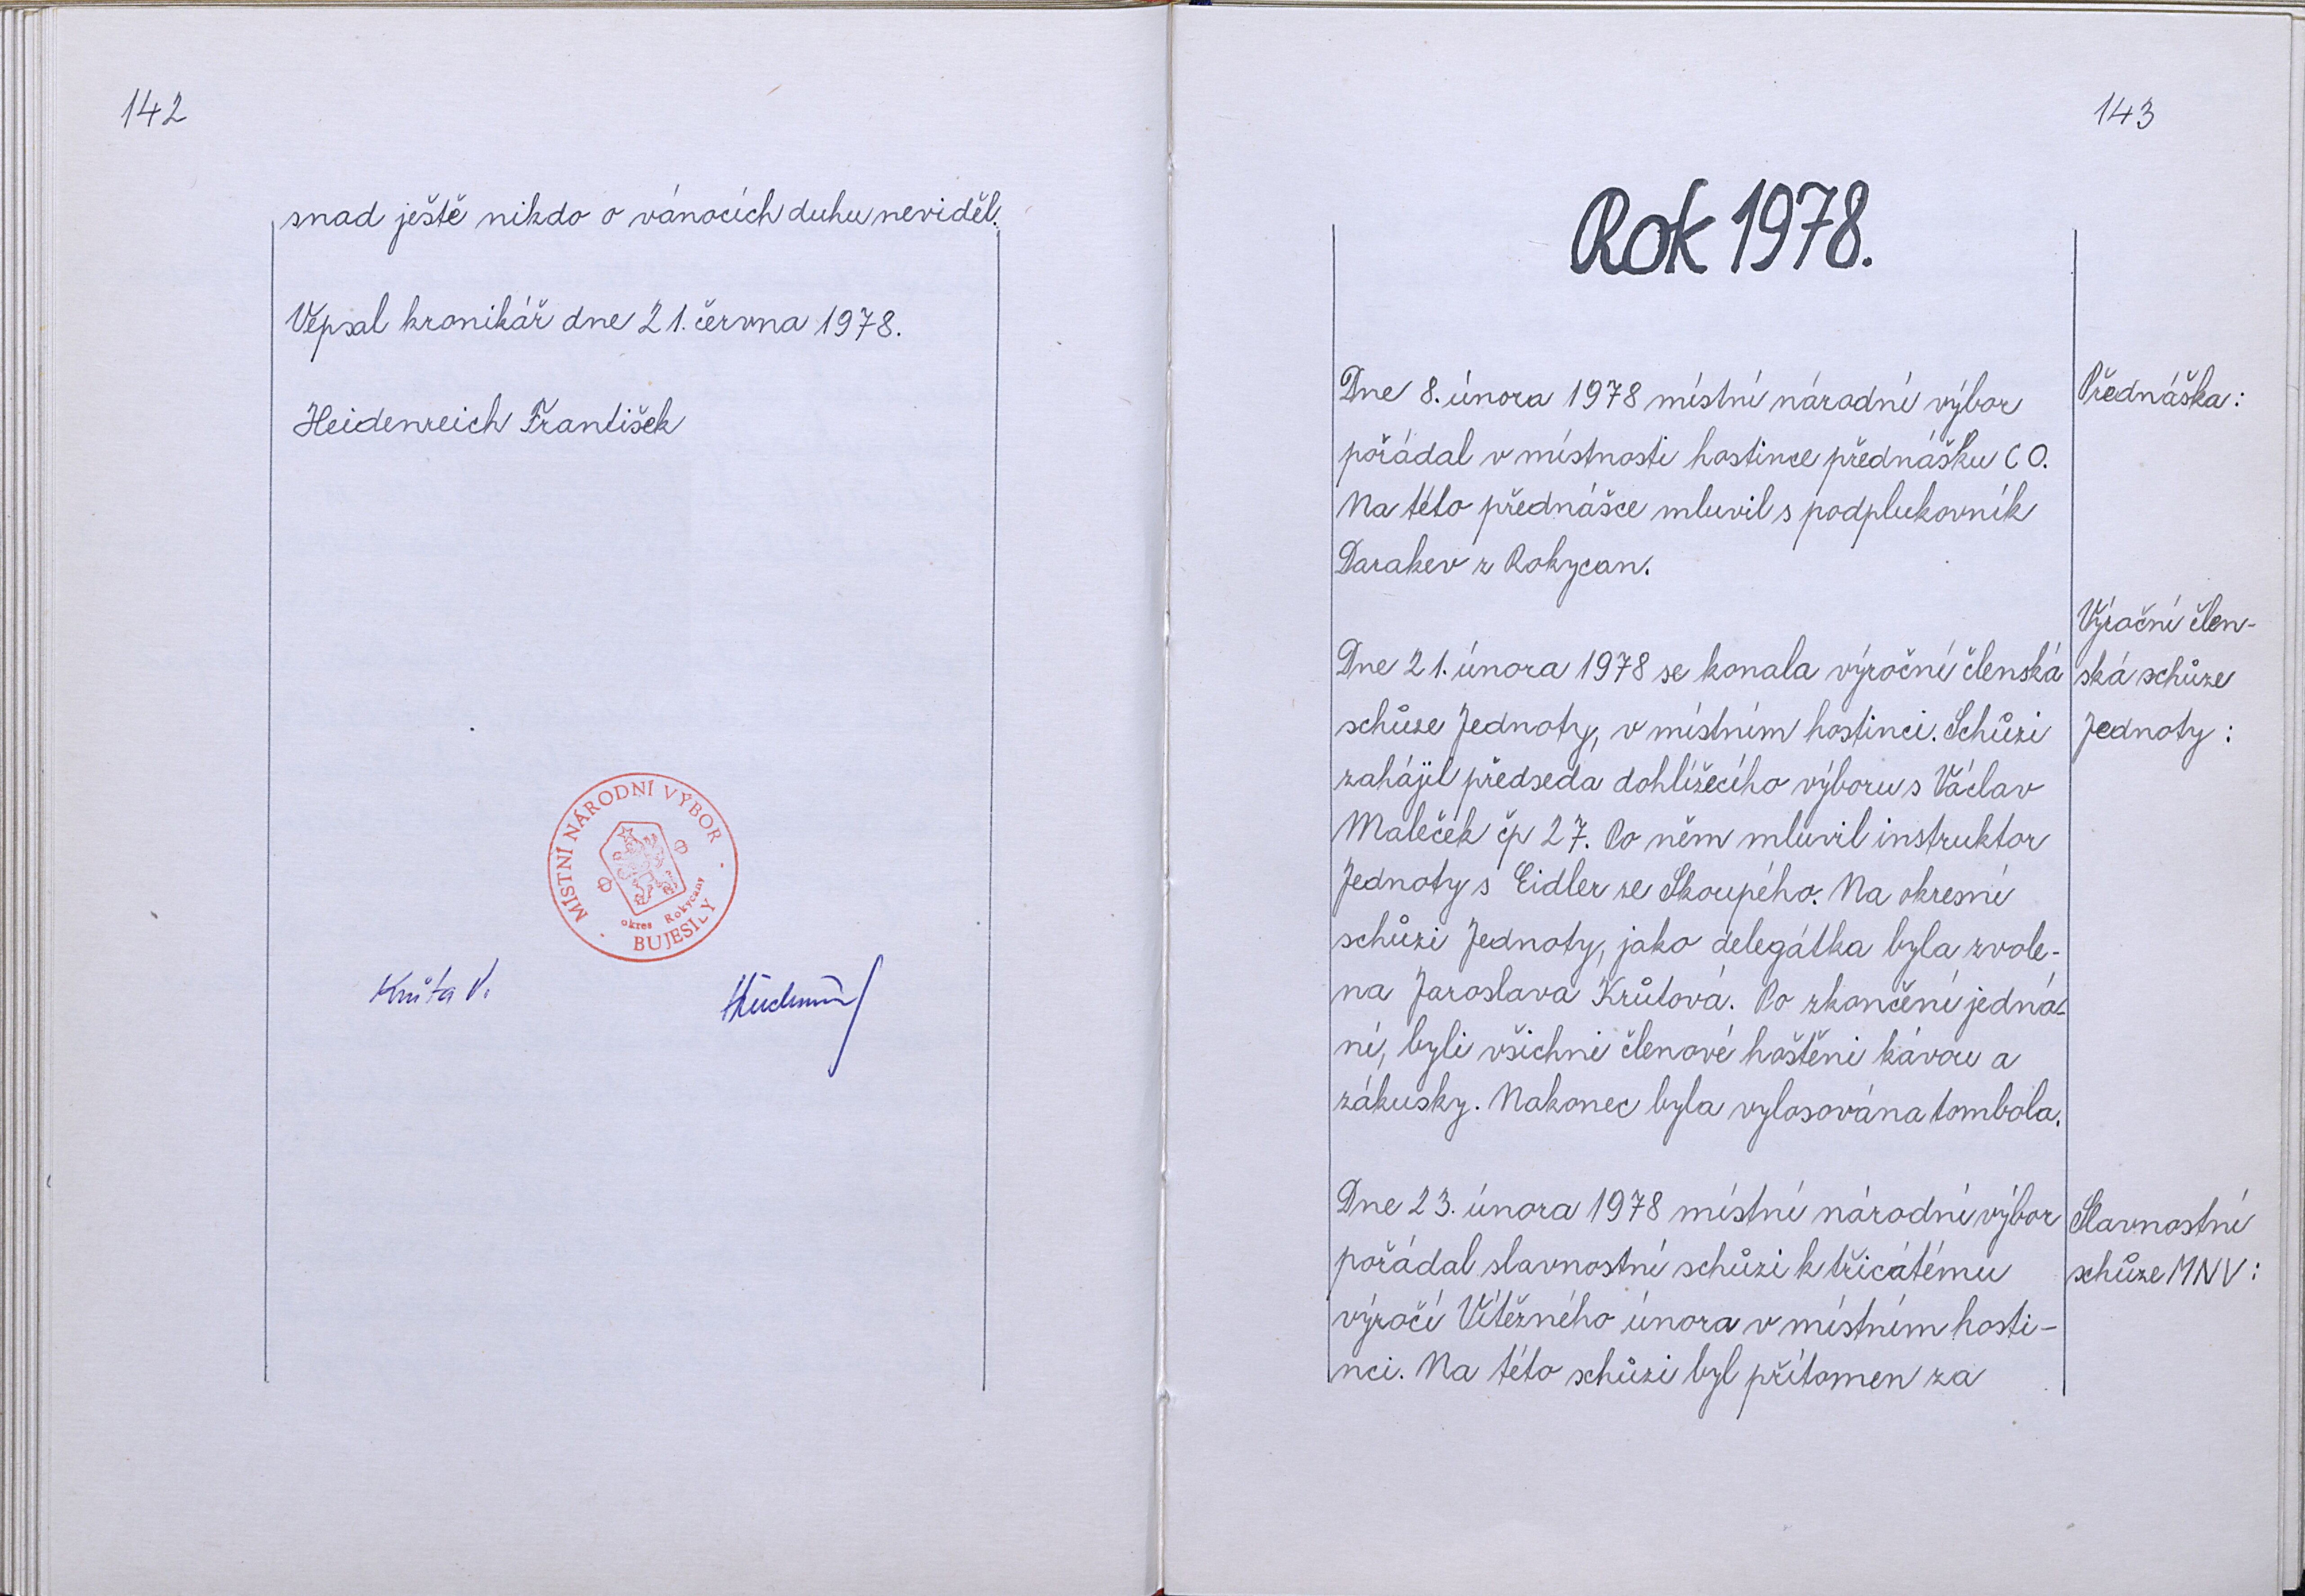 142
snad ještě nikdo o vánocích duhu neviděl.
Vepsal kronikář dne 21. června 1978.
Heidenreich František
MÍSTNÍ NÁRODNÍ VÝBOR
okres Rokycany
BUJESILY
Krůta V.
143
Rok 1978.
Dne 8. února 1978 místní národní výbor
Přednáška:
pořádal v místnosti hostince přednášku CO.
Na této přednášce mluvil s podplukovník
Darakev z Rokycan.
Výroční člen-
Dne 21. února 1978 se konala výroční členská
ská schůze
schůze Jednoty, v místním hostinci. Schůzi
Jednoty:
zahájil předseda dohlížecího výboru s Václav
Maleček čp 27. Po něm mluvil instruktor
Jednoty s Eidler ze Skoupého. Na okresní
schůzi Jednoty, jako delegátka byla zvole-
na Jaroslava Krůtová. Po zkončení jedná-
ní, byli všichni členové hoštěni kávou a
zákusky. Nakonec byla vylosována tombola.
Dne 23. února 1978 místní národní výbor
Slavnostní
pořádal slavnostní schůzi k třicátému
schůze MNV:
výročí Vítězného února v místním hosti-
nci. Na této schůzi byl přítomen za